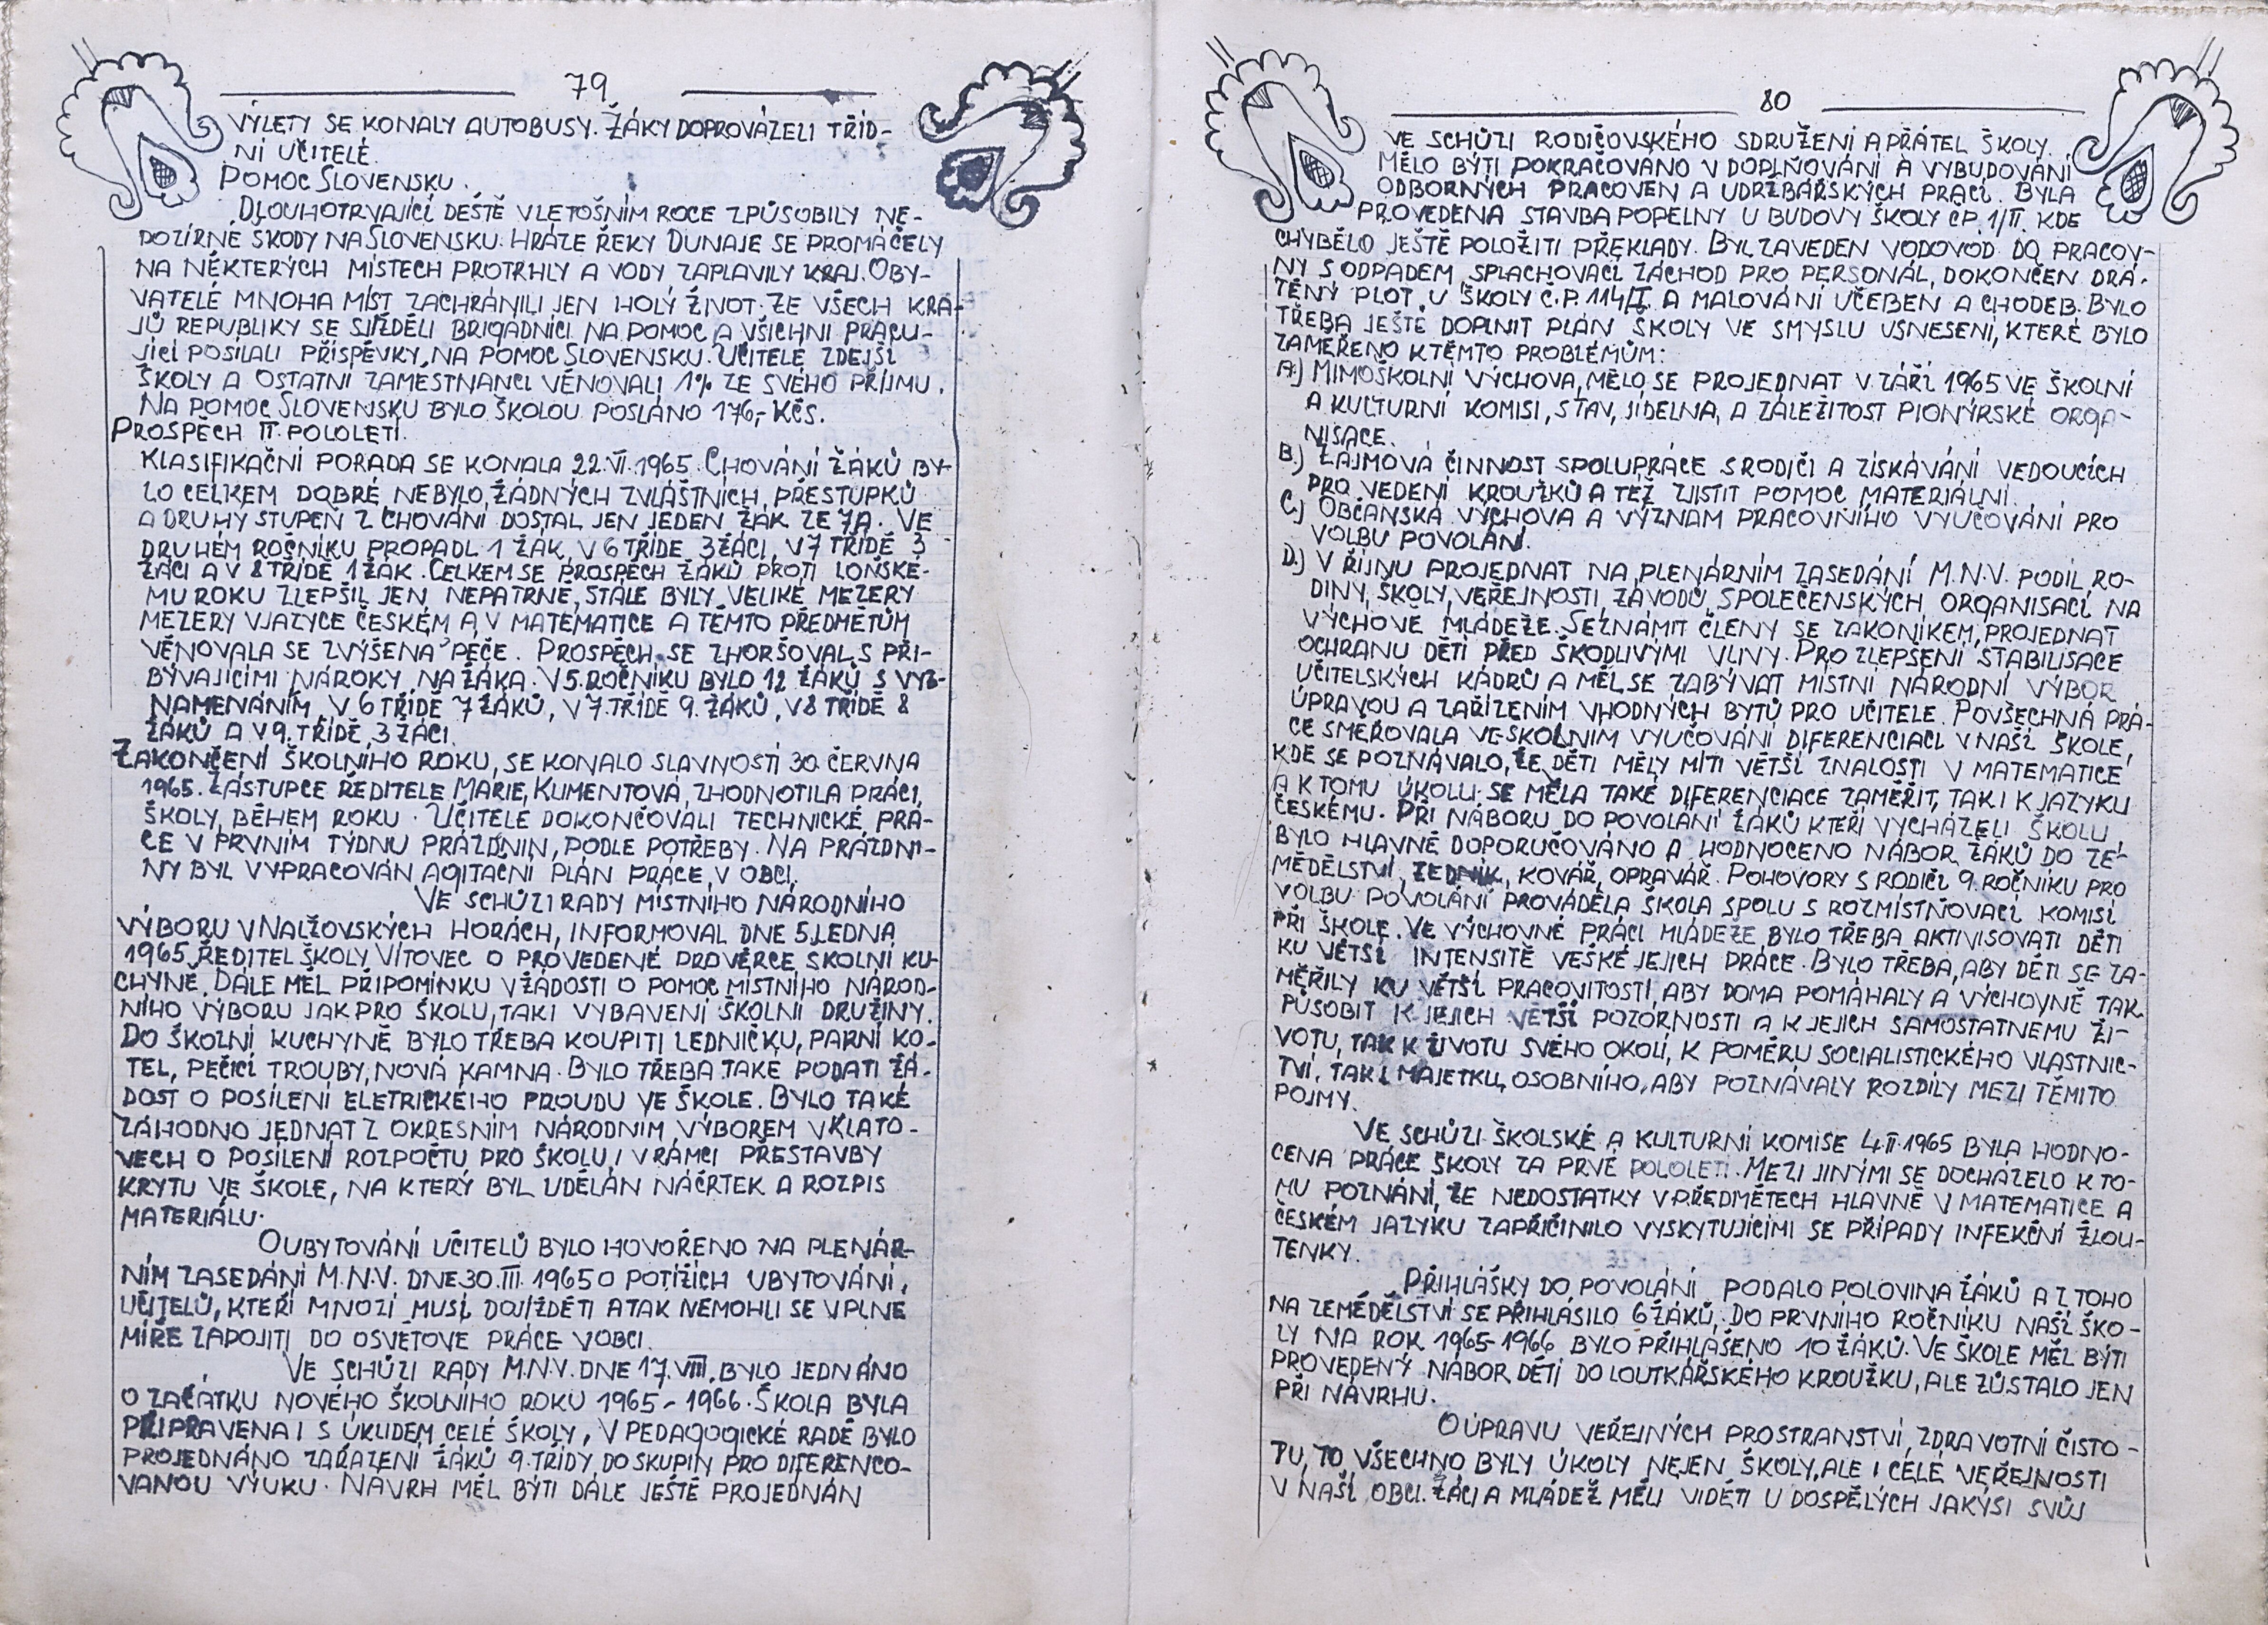 79
VÝLETY SE KONALY AUTOBUSY. ŽÁKY DOPROVÁZELI TŘÍD-
NÍ UČITELÉ.
POMOC SLOVENSKU.
DLOUHOTRVAJÍCÍ DEŠTĚ V LETOŠNÍM ROCE ZPŮSOBILY NE-
DOZÍRNÉ ŠKODY NA SLOVENSKU. HRÁZE ŘEKY DUNAJE SE PROMÁČELY
NA NĚKTERÝCH MÍSTECH PROTRHLY A VODY ZAPLAVILY KRAJ. OBY-
VATELÉ MNOHA MÍST ZACHRÁNILI JEN HOLÝ ŽIVOT. ZE VŠECH KRA-
JŮ REPUBLIKY SE SJÍŽDĚLI BRIGÁDNÍCI NA POMOC A VŠICHNI PRACU-
JÍCÍ POSÍLALI PŘÍSPĚVKY, NA POMOC SLOVENSKU. UČITELÉ ZDEJŠÍ
ŠKOLY A OSTATNÍ ZAMĚSTNANCI VĚNOVALI 1% ZE SVÉHO PŘÍJMU.
NA POMOC SLOVENSKU BYLO ŠKOLOU POSLÁNO 176,- KČS.
PROSPĚCH II. POLOLETÍ.
KLASIFIKAČNÍ PORADA SE KONALA 22. VI. 1965. CHOVÁNÍ ŽÁKŮ BY-
LO CELKEM DOBRÉ, NEBYLO, ŽÁDNÝCH ZVLÁŠTNÍCH, PŘESTUPKŮ
A DRUHÝ STUPEŇ Z CHOVÁNÍ DOSTAL JEN JEDEN ŽÁK ZE 7A. VE
DRUHÉM ROČNÍKU PROPADL 1 ŽÁK, V 6 TŘÍDĚ 3 ŽÁCI, V 7 TŘÍDĚ 3
ŽÁCI A V 8 TŘÍDĚ 1 ŽÁK. CELKEM SE PROSPĚCH ŽÁKŮ PROTI LOŇSKÉ-
MU ROKU ZLEPŠIL JEN NEPATRNĚ, STÁLE BYLY VELIKÉ MEZERY
MEZERY V JAZYCE ČESKÉM A V MATEMATICE A TĚMTO PŘEDMĚTŮM
VĚNOVALA SE ZVÝŠENÁ PÉČE. PROSPĚCH SE ZHORŠOVAL S PŘI-
BÝVAJÍCÍMI NÁROKY, NA ŽÁKA. V 5. ROČNÍKU BYLO 12 ŽÁKŮ S VYZ-
NAMENÁNÍM, V 6 TŘÍDĚ 7 ŽÁKŮ, V 7. TŘÍDĚ 9. ŽÁKŮ, V 8 TŘÍDĚ 8
ŽÁKŮ A V 9. TŘÍDĚ, 3 ŽÁCI.
ZAKONČENÍ ŠKOLNÍHO ROKU, SE KONALO SLAVNOSTÍ 30. ČERVNA
1965. ZÁSTUPCE ŘEDITELE MARIE, KLIMENTOVÁ, ZHODNOTILA PRÁCI,
ŠKOLY, BĚHEM ROKU. UČITELÉ DOKONČOVALI TECHNICKÉ, PRÁ-
CE V PRVNÍM TÝDNU PRÁZDNIN, PODLE POTŘEBY. NA PRÁZDNI-
NY BYL VYPRACOVÁN AGITAČNÍ PLÁN PRÁCE, V OBCI.
VE SCHŮZI RADY MÍSTNÍHO NÁRODNÍHO
VÝBORU V NALŽOVSKÝCH HORÁCH, INFORMOVAL DNE 5. LEDNA
1965 ŘEDITEL ŠKOLY VÍTOVEC O PROVEDENÉ PROVĚRCE ŠKOLNÍ KU-
CHYNĚ. DÁLE MĚL PŘIPOMÍNKU V ŽÁDOSTI O POMOC MÍSTNÍHO NÁROD-
NÍHO VÝBORU JAK PRO ŠKOLU, TAK I VYBAVENÍ ŠKOLNÍ DRUŽINY.
DO ŠKOLNÍ KUCHYNĚ BYLO TŘEBA KOUPITI LEDNIČKU, PARNÍ KO-
TEL, PEČÍCÍ TROUBY, NOVÁ KAMNA. BYLO TŘEBA TAKÉ PODATI ŽÁ-
DOST O POSÍLENÍ ELETRICKÉHO PROUDU VE ŠKOLE. BYLO TAKÉ
ZÁHODNO JEDNAT Z OKRESNÍM NÁRODNÍM, VÝBOREM V KLATO-
VECH O POSÍLENÍ ROZPOČTU PRO ŠKOLU, I V RÁMCI PŘESTAVBY
KRYTU VE ŠKOLE, NA KTERÝ BYL UDĚLÁN NÁČRTEK A ROZPIS
MATERIÁLU.
O UBYTOVÁNÍ UČITELŮ BYLO HOVOŘENO NA PLENÁR-
NÍM ZASEDÁNÍ M.N.V. DNE 30. III. 1965 O POTÍŽÍCH UBYTOVÁNÍ,
UČITELŮ, KTEŘÍ MNOZÍ MUSÍ DOJÍŽDĚTI A TAK NEMOHLI SE V PLNÉ
MÍŘE ZAPOJITI DO OSVĚTOVÉ PRÁCE V OBCI.
VE SCHŮZI RADY M.N.V. DNE 17. VIII. BYLO JEDNÁNO
O ZAČÁTKU NOVÉHO ŠKOLNÍHO ROKU 1965 - 1966. ŠKOLA BYLA
PŘIPRAVENA I S ÚKLIDEM CELÉ ŠKOLY, V PEDAGOGICKÉ RADĚ BYLO
PROJEDNÁNO ZAŘAZENÍ ŽÁKŮ 9. TŘÍDY DO SKUPIN PRO DIFERENCO-
VANOU VÝUKU. NÁVRH MĚL BÝTI DÁLE JEŠTĚ PROJEDNÁN
80
VE SCHŮZI RODIČOVSKÉHO SDRUŽENÍ A PŘÁTEL ŠKOLY.
MĚLO BÝTI POKRAČOVÁNO V DOPLŇOVÁNÍ A VYBUDOVÁNÍ
ODBORNÝCH PRACOVEN A UDRŽBÁŘSKÝCH PRACÍ. BYLA
PROVEDENA STAVBA POPELNY U BUDOVY ŠKOLY ČP. 1/II. KDE
CHYBĚLO JEŠTĚ POLOŽITI PŘEKLADY. BYL ZAVEDEN VODOVOD DO PRACOV-
NY S ODPADEM SPLACHOVACÍ ZÁCHOD PRO PERSONÁL, DOKONČEN DRÁ-
TĚNÝ PLOT U ŠKOLY Č.P. 114/I. A MALOVÁNÍ UČEBEN A CHODEB. BYLO
TŘEBA JEŠTĚ DOPLNIT PLÁN ŠKOLY VE SMYSLU USNESENÍ, KTERÉ BYLO
ZAMĚŘENO K TĚMTO PROBLÉMŮM:
A.) MIMOŠKOLNÍ VÝCHOVA, MĚLO SE PROJEDNAT V ZÁŘÍ 1965 VE ŠKOLNÍ
A KULTURNÍ KOMISI, STAV, JÍDELNA, A ZÁLEŽITOST PIONÝRSKÉ ORGA-
NISACE.
B.) ZÁJMOVÁ ČINNOST SPOLUPRÁCE S RODIČI A ZÍSKÁVÁNÍ VEDOUCÍCH
PRO VEDENÍ KROUŽKŮ A TÉŽ ZJISTIT POMOC MATERIÁLNÍ.
C.) OBČANSKÁ VÝCHOVA A VÝZNAM PRACOVNÍHO VYUČOVÁNÍ PRO
VOLBU POVOLÁNÍ.
D.) V ŘÍJNU PROJEDNAT NA PLENÁRNÍM ZASEDÁNÍ M.N.V. PODÍL RO-
DINY, ŠKOLY, VEŘEJNOSTI, ZÁVODŮ, SPOLEČENSKÝCH ORGANISACÍ NA
VÝCHOVĚ MLÁDEŽE. SEZNÁMIT ČLENY SE ZÁKONÍKEM, PROJEDNAT
OCHRANU DĚTÍ PŘED ŠKODLIVÝMI VLIVY. PRO ZLEPŠENÍ STABILISACE
UČITELSKÝCH KÁDRŮ A MĚL SE ZABÝVAT MÍSTNÍ NÁRODNÍ VÝBOR
ÚPRAVOU A ZAŘÍZENÍM VHODNÝCH BYTŮ PRO UČITELE. POVŠECHNÁ PRÁ-
CE SMĚŘOVALA VE ŠKOLNÍM VYUČOVÁNÍ DIFERENCIACI V NAŠÍ ŠKOLE,
KDE SE POZNÁVALO, ŽE DĚTI MĚLY MÍTI VĚTŠÍ ZNALOSTI V MATEMATICE
A K TOMU ÚKOLU SE MĚLA TAKÉ DIFERENCIACE ZAMĚŘIT, TAK I K JAZYKU
ČESKÉMU. PŘI NÁBORU DO POVOLÁNÍ ŽÁKŮ KTEŘÍ VYCHÁZELI ŠKOLU,
BYLO HLAVNĚ DOPORUČOVÁNO A HODNOCENO NÁBOR ŽÁKŮ DO ZE-
MĚDĚLSTVÍ, ZEDNÍK, KOVÁŘ, OPRAVÁŘ. POHOVORY S RODIČI 9. ROČNÍKU PRO
VOLBU POVOLÁNÍ PROVÁDĚLA ŠKOLA SPOLU S ROZMÍSTŇOVACÍ KOMISÍ
PŘI ŠKOLE. VE VÝCHOVNÉ PRÁCI MLÁDEŽE BYLO TŘEBA AKTIVISOVATI DĚTI
KU VĚTŠÍ INTENSITĚ VEŠKÉ JEJICH PRÁCE. BYLO TŘEBA, ABY DĚTI SE ZA-
MĚŘILY KU VĚTŠÍ PRACOVITOSTI, ABY DOMA POMÁHALY A VÝCHOVNĚ TAK
PŮSOBIT K JEJICH VĚTŠÍ POZORNOSTI A K JEJICH SAMOSTATNÉMU ŽI-
VOTU, TAK K ŽIVOTU SVÉHO OKOLÍ, K POMĚRU SOCIALISTICKÉHO VLASTNIC-
TVÍ, TAK I MAJETKU, OSOBNÍHO, ABY POZNÁVALY ROZDÍLY MEZI TĚMITO
POJMY.
VE SCHŮZI ŠKOLSKÉ A KULTURNÍ KOMISE 4. II. 1965 BYLA HODNO-
CENA PRÁCE ŠKOLY ZA PRVÉ POLOLETÍ. MEZI JINÝMI SE DOCHÁZELO K TO-
MU POZNÁNÍ, ŽE NEDOSTATKY V PŘEDMĚTECH HLAVNĚ V MATEMATICE A
ČESKÉM JAZYKU ZAPŘÍČINILO VYSKYTUJÍCÍMI SE PŘÍPADY INFEKČNÍ ŽLOU-
TENKY.
PŘIHLÁŠKY DO POVOLÁNÍ PODALO POLOVINA ŽÁKŮ A Z TOHO
NA ZEMĚDĚLSTVÍ SE PŘIHLÁSILO 6 ŽÁKŮ. DO PRVNÍHO ROČNÍKU NAŠÍ ŠKO-
LY NA ROK 1965-1966 BYLO PŘIHLÁŠENO 10 ŽÁKŮ. VE ŠKOLE MĚL BÝTI
PROVEDENÝ NÁBOR DĚTÍ DO LOUTKÁŘSKÉHO KROUŽKU, ALE ZŮSTALO JEN
PŘI NÁVRHU.
O ÚPRAVU VEŘEJNÝCH PROSTRANSTVÍ, ZDRAVOTNÍ ČISTO-
TU, TO VŠECHNO BYLY ÚKOLY NEJEN ŠKOLY, ALE I CELÉ VEŘEJNOSTI
V NAŠÍ OBCI. ŽÁCI A MLÁDEŽ MĚLI VIDĚTI U DOSPĚLÝCH JAKÝSI SVŮJ